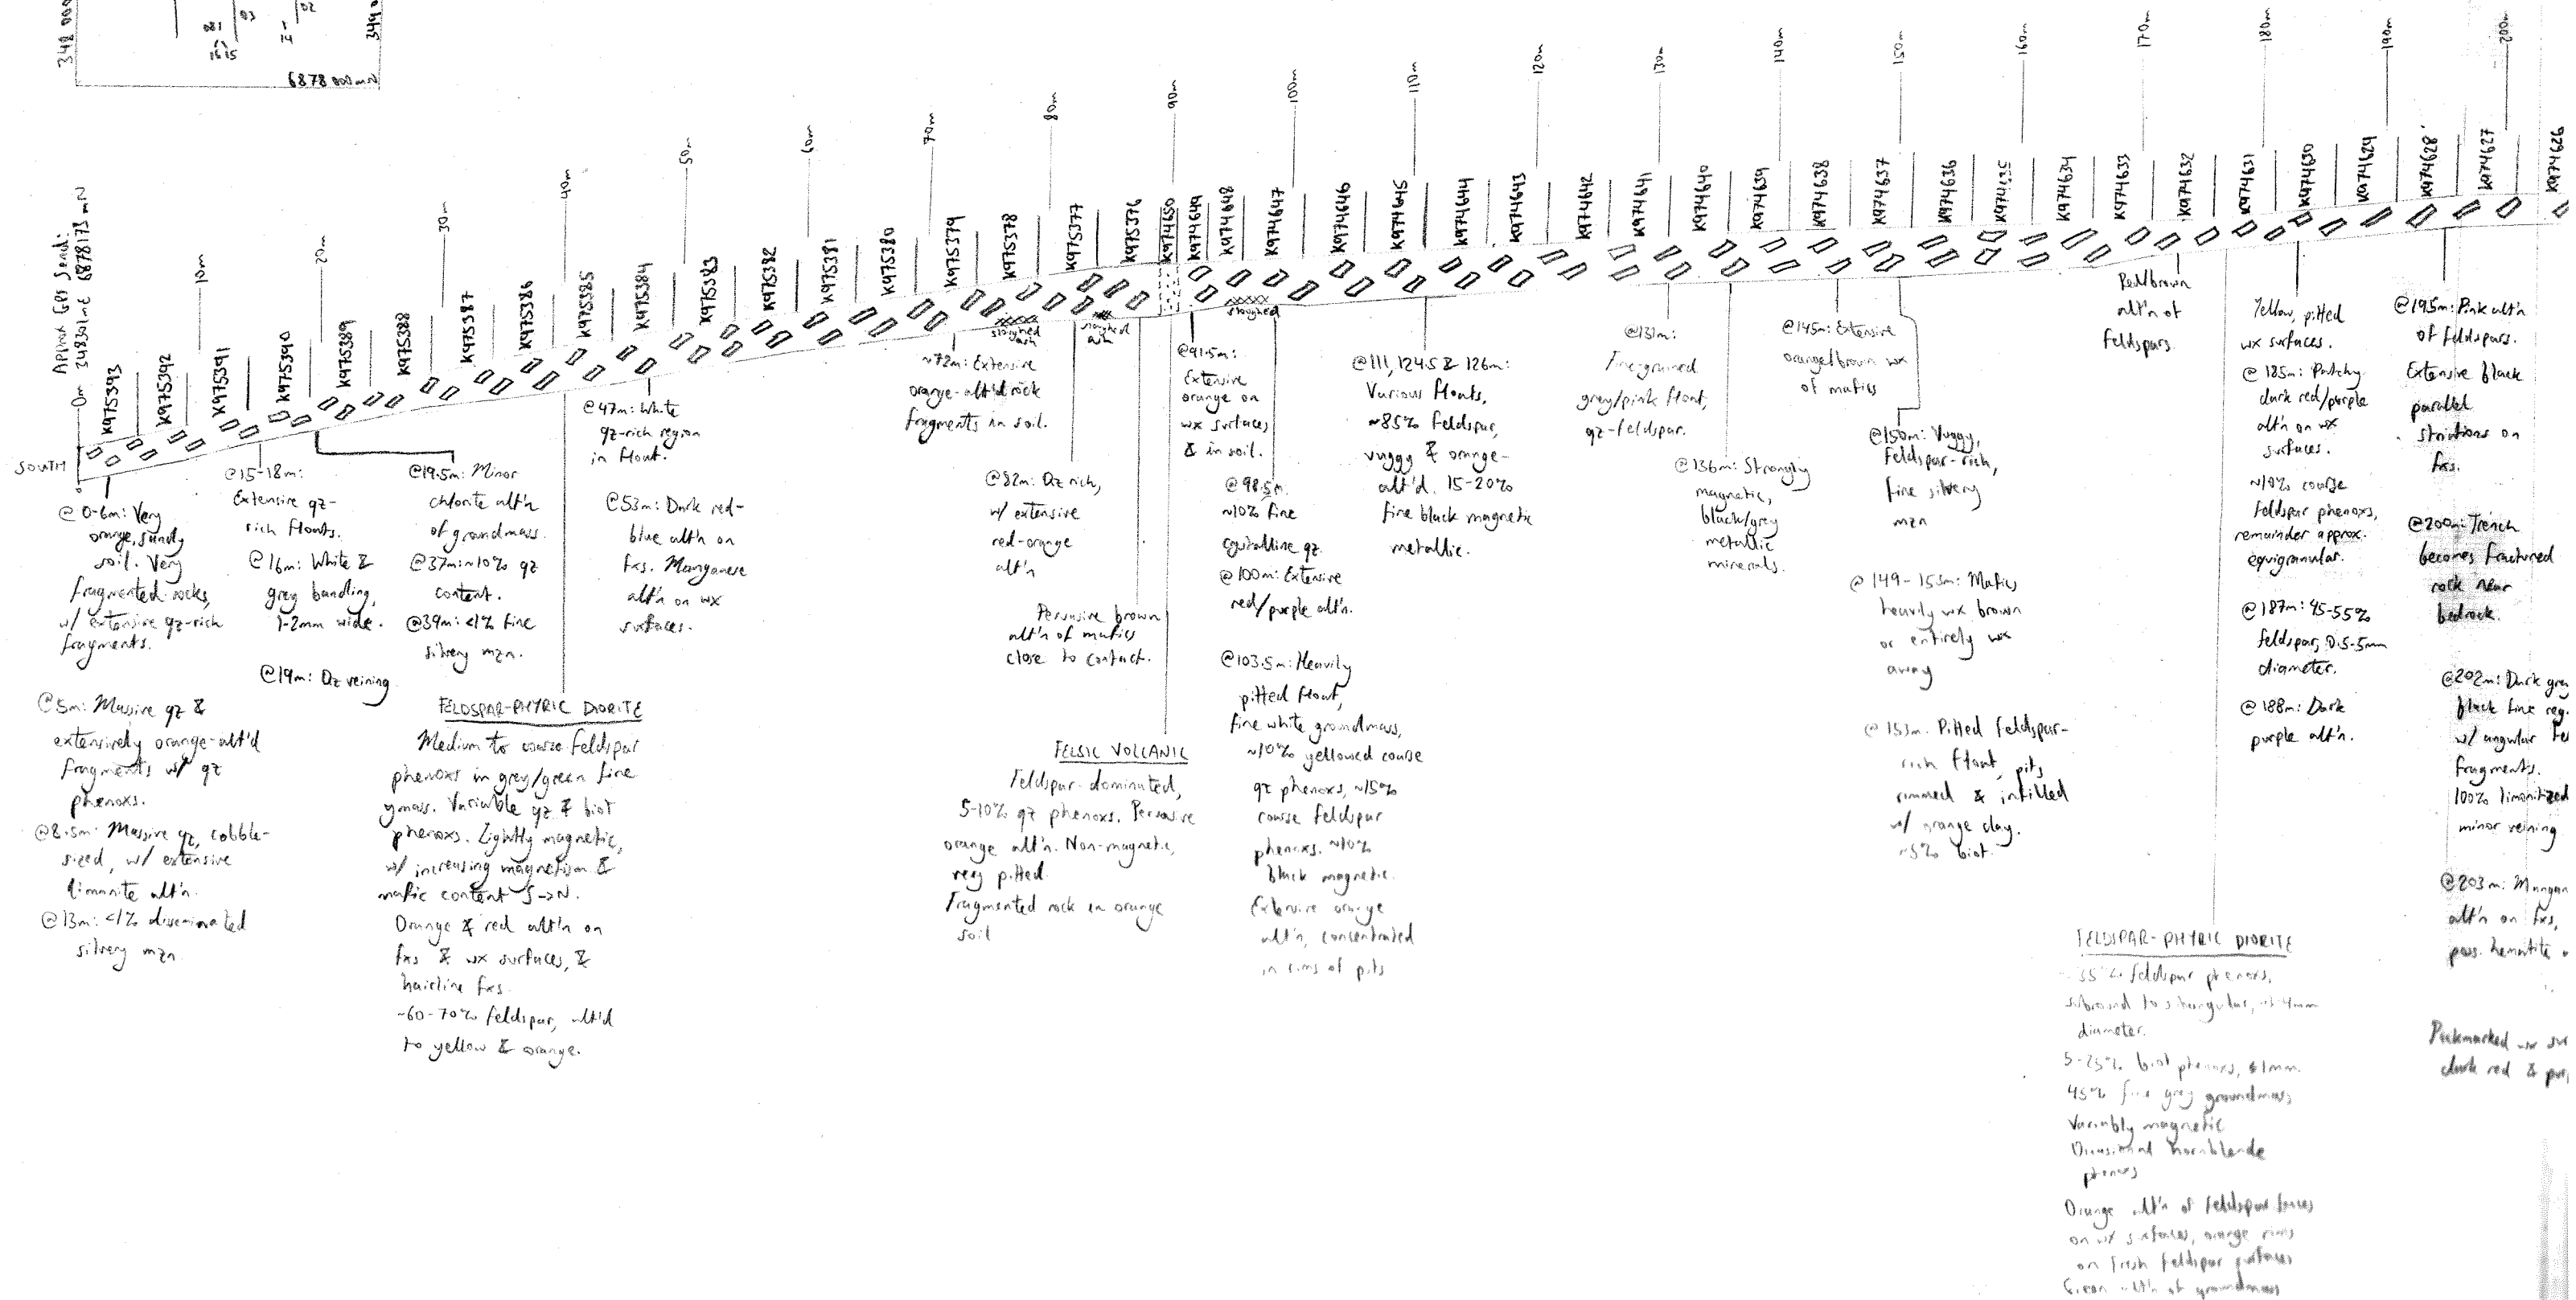 348 000
03
02
081
14
16 15
349 0
6878 000mN
Approx GPS Send:
0m 348301mE 6878173mN
10m
20m
30m
40m
50m
60m
70m
80m
90m
100m
110m
120m
130m
140m
150m
160m
170m
180m
190m
200m
K975393
K975392
K975391
K975390
K975389
K975388
K975387
K975386
K975385
K975384
K975383
K975382
K975381
K975380
K975379
K975378
K975377
K975376
K974650
K974649
K974648
K974647
K974646
K974645
K974644
K974643
K974642
K974641
K974640
K974639
K974638
K974637
K974636
K974635
K974634
K974633
K974632
K974631
K974630
K974629
K974628
K974627
K974626
SOUTH
sloughed
ash
sloughed
ash
sloughed
@ 0-6m: Very
orange, sandy
soil. Very
fragmented rocks,
w/ extensive qz-rich
fragments.
@5m: Massive qz &
extensively orange-alt'd
fragments w/ qz
phenoxs.
@8.5m: Massive qz, cobble-
sized, w/ extensive
limonite alt'n.
@13m: <1% disseminated
silvery mzn
@15-18m:
Extensive qz-
rich floats.
@16m: White &
grey banding,
1-2mm wide.
@19m: Qz veining
@19.5m: Minor
chlorite alt'n
of groundmass.
@37m: ~10% qz
content.
@39m: <1% fine
silvery mzn.
FELDSPAR-PHYRIC DIORITE
Medium to coarse feldspar
phenoxs in grey/green fine
gmass. Variable qz & biot
phenoxs. Lightly magnetic,
w/ increasing magnetism &
mafic content S->N.
Orange & red alt'n on
fxs & wx surfaces, &
hairline fxs.
~60-70% feldspar, alt'd
to yellow & orange.
@47m: White
qz-rich region
in float.
@53m: Dark red-
blue alt'n on
fxs. Manganese
alt'n on wx
surfaces.
~72m: Extensive
orange-alt'd rock
fragments in soil.
@82m: Qz rich,
w/ extensive
red-orange
alt'n
Pervasive brown
alt'n of mafics
close to contact.
FELSIC VOLCANIC
Feldspar-dominated,
5-10% qz phenoxs. Pervasive
orange alt'n. Non-magnetic,
very pitted.
Fragmented rock in orange
soil
@91.5m:
Extensive
orange on
wx surfaces
& in soil.
@98.5m:
~10% fine
crystalline qz.
@100m: Extensive
red/purple alt'n.
@103.5m: Heavily
pitted float,
fine white groundmass,
~10% yellowed coarse
qz phenoxs, ~15%
coarse feldspar
phenoxs. ~10%
black magnetic.
Extensive orange
alt'n, concentrated
in rims of pits
@111, 124.5 & 126m:
Various floats,
~85% feldspar,
vuggy & orange-
alt'd. 15-20%
fine black magnetic
metallic.
@131m:
Fine grained
grey/pink float,
qz-feldspar.
@136m: Strongly
magnetic,
black/grey
metallic
minerals.
@145m: Extensive
orange/brown wx
of mafics
@150m: Vuggy,
feldspar-rich,
fine silvery
mzn
@ 149-153m: Mafics
heavily wx brown
or entirely wx
away
@ 153m: Pitted feldspar-
rich float, pits
rimmed & infilled
w/ orange clay.
~5% biot.
Red/brown
alt'n of
feldspars
FELDSPAR-PHYRIC DIORITE
35% feldspar phenoxs,
subround to subangular, 4mm
diameter.
5-25% biot phenoxs, ≤1mm
45% fine grey groundmass
Variably magnetic
Occasional hornblende
phenoxs
Orange alt'n of feldspar faces
on wx surfaces, orange rims
on fresh feldspar surfaces
Green alt'n of groundmass
Yellow, pitted
wx surfaces.
@ 185m: Patchy
dark red/purple
alt'n on wx
surfaces.
~10% coarse
feldspar phenoxs,
remainder approx.
equigranular.
@187m: 45-55%
feldspar, 0.5-5mm
diameter.
@188m: Dark
purple alt'n.
@195m: Pink alt'n
of feldspars.
Extensive black
parallel
striations on
fxs.
@200m: Trench
becomes fractured
rock near
bedrock.
@202m: Dark grey
black fine reg
w/ angular fe
fragments.
100% limonitized
minor veining
@203m: Mangan
alt'n on fxs,
poss. hematite
Pockmarked wx su
dark red & pur